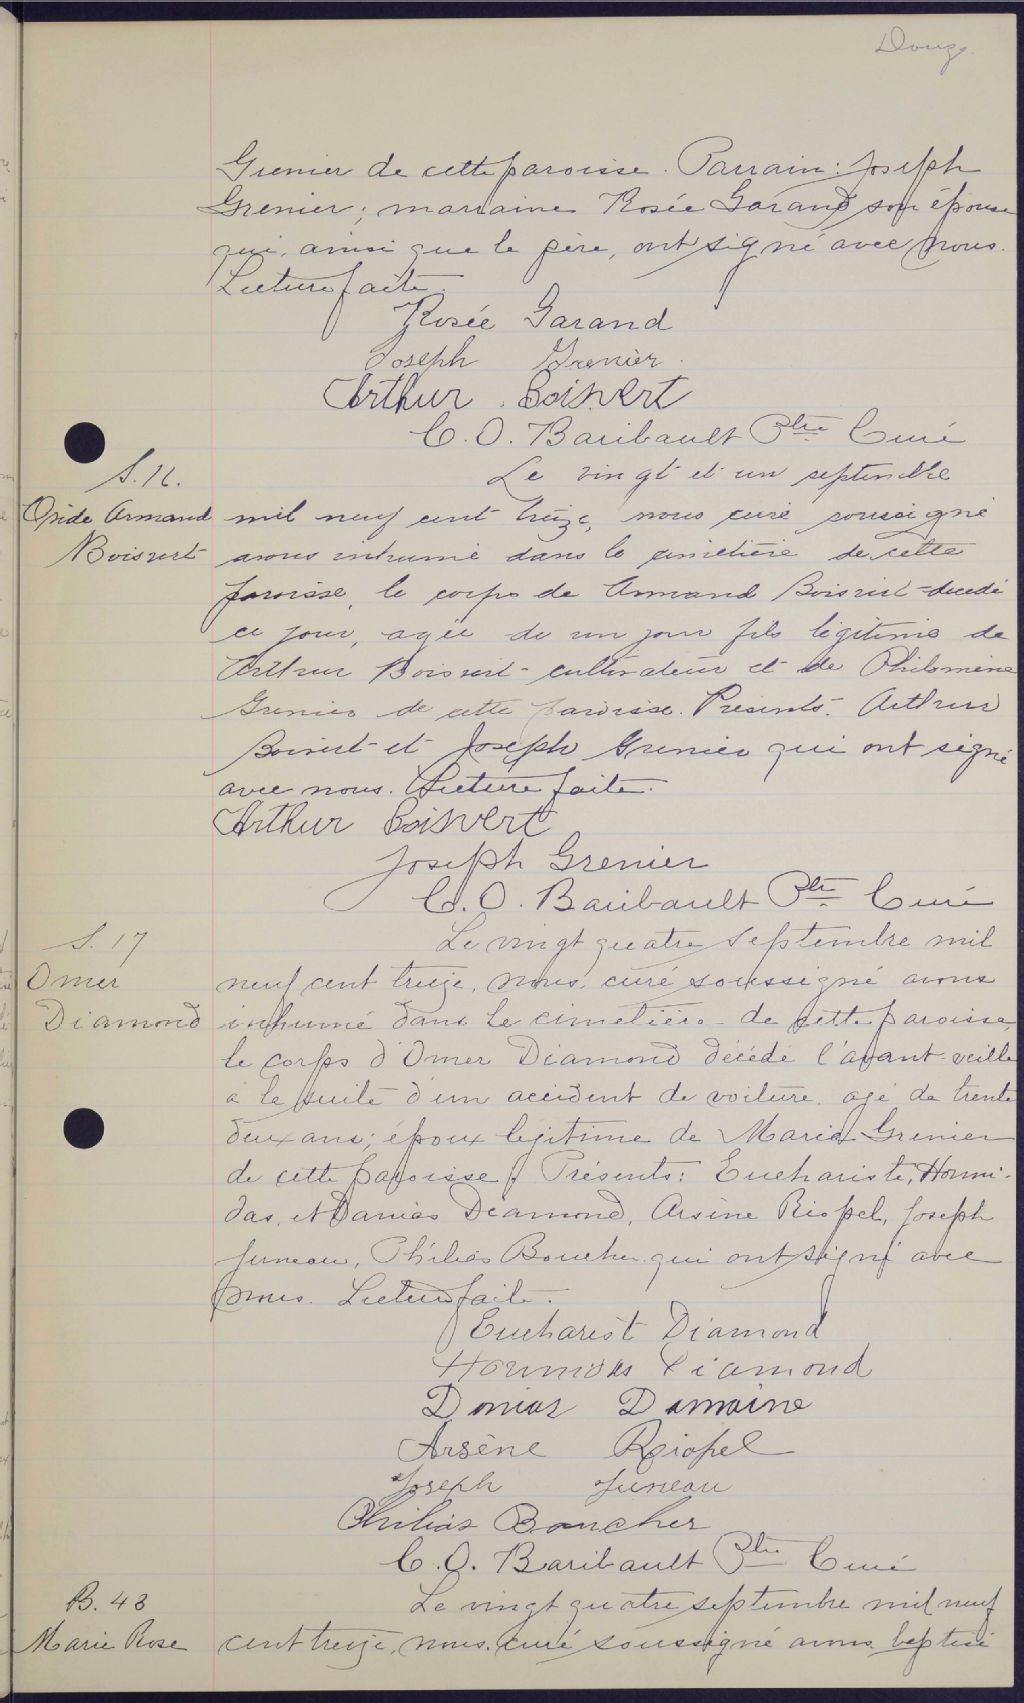 Douze
Grenier de cette paroisse. Parrain: Joseph
Grenier; marraine Rosée Garand son épouse
qui, ainsi que le père, ont signé avec nous.
Lecture faite.
Rosée Garand
Joseph Grenier.
Arthur Boisvert
C. O. Baribault Ptre Curé
S. 16.
Le vingt et un septembre
Armand
Boisvert
mil neuf cent treize, nous curé soussigné
avons inhumé dans le cimetière de cette
paroisse, le corps de Armand Boisvert décédé
ce jour, agée de un jour fils légitime de
Arthur Boisvert cultivateur et de Philomène
Grenier de cette paroisse. Présents. Arthur
Boisvert et Joseph Grenier qui ont signé
avec nous. Lecture faite.
Arthur Boisvert
Joseph Grenier
C. O. Baribault Ptre Curé
S. 17
Le vingt quatre septembre mil
Omer
Diamond
neuf cent treize, nous, curé soussigné avons
inhumé dans le cimetière de cette paroisse,
le corps d'Omer Diamond décédé l'avant-veille
à la suite d'un accident de voiture, agé de trente
deux ans; époux légitime de Maria Grenier
de cette paroisse. Présents: Euchariste, Hormi-
das, et Damias Diamond, Arsène Riopel, Joseph
Juneau, Philias Boucher qui ont signé avec
nous. Lecture faite.
Eucharist Diamond
Hormidas Diamond
Donias Domaine
Arsène Riopel
Joseph Juneau
Philias Boucher
C. O. Baribault Ptre Curé
B. 43
Le vingt quatre septembre mil neuf
Marie Rose
cent treize, nous, curé soussigné avons baptisé